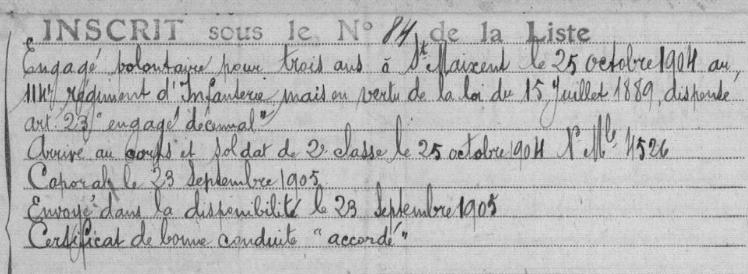 INSCRIT sous le N° 84 de la Liste
Engagé volontaire pour trois ans à St Maixent le 25 octobre 1904 au
114e régiment d'Infanterie, mais en vertu de la loi du 15 Juillet 1889, dispensé
art. 23 "engagé décennal"
Arrivé au corps et soldat de 2e classe le 25 octobre 1904 N° Mle 4526
Caporal le 23 Septembre 1905
Envoyé dans la disponibilité le 23 Septembre 1905
Certificat de bonne conduite "accordé"